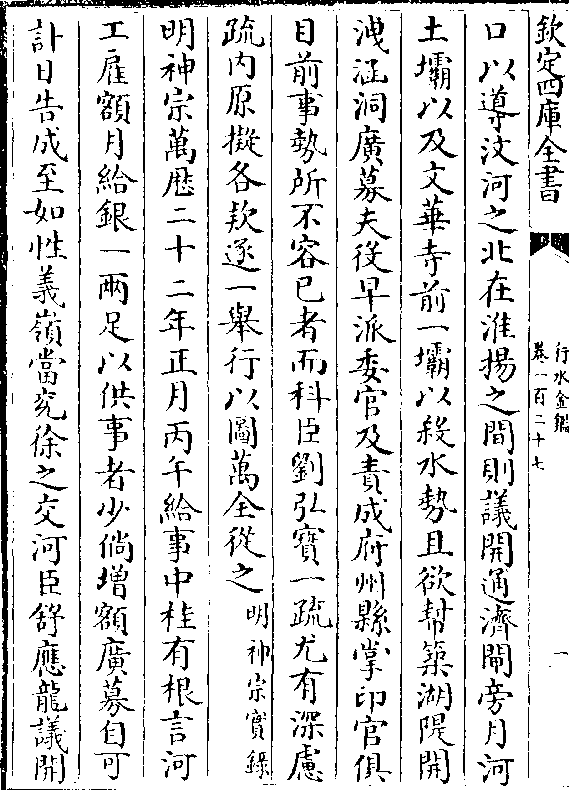 欽定四庫全書
行水金鑑
卷一百二十七
一
口以導汶河之北在淮揚之間則議開通濟閘旁月河
土壩以及文華寺前一壩以殺水勢且欲幫築湖隄開
洩涵洞廣募夫役早派委官及責成府州縣掌印官俱
目前事勢所不容已者而科臣劉弘寶一疏尤有深慮
疏内原擬各款逐一舉行以圖萬全從之明神宗實錄
明神宗萬厯二十二年正月丙午給事中桂有根言河
工雇額月給銀一兩足以供事者少倘增額廣募自可
計日告成至如性義嶺當兖徐之交河臣舒應龍議開